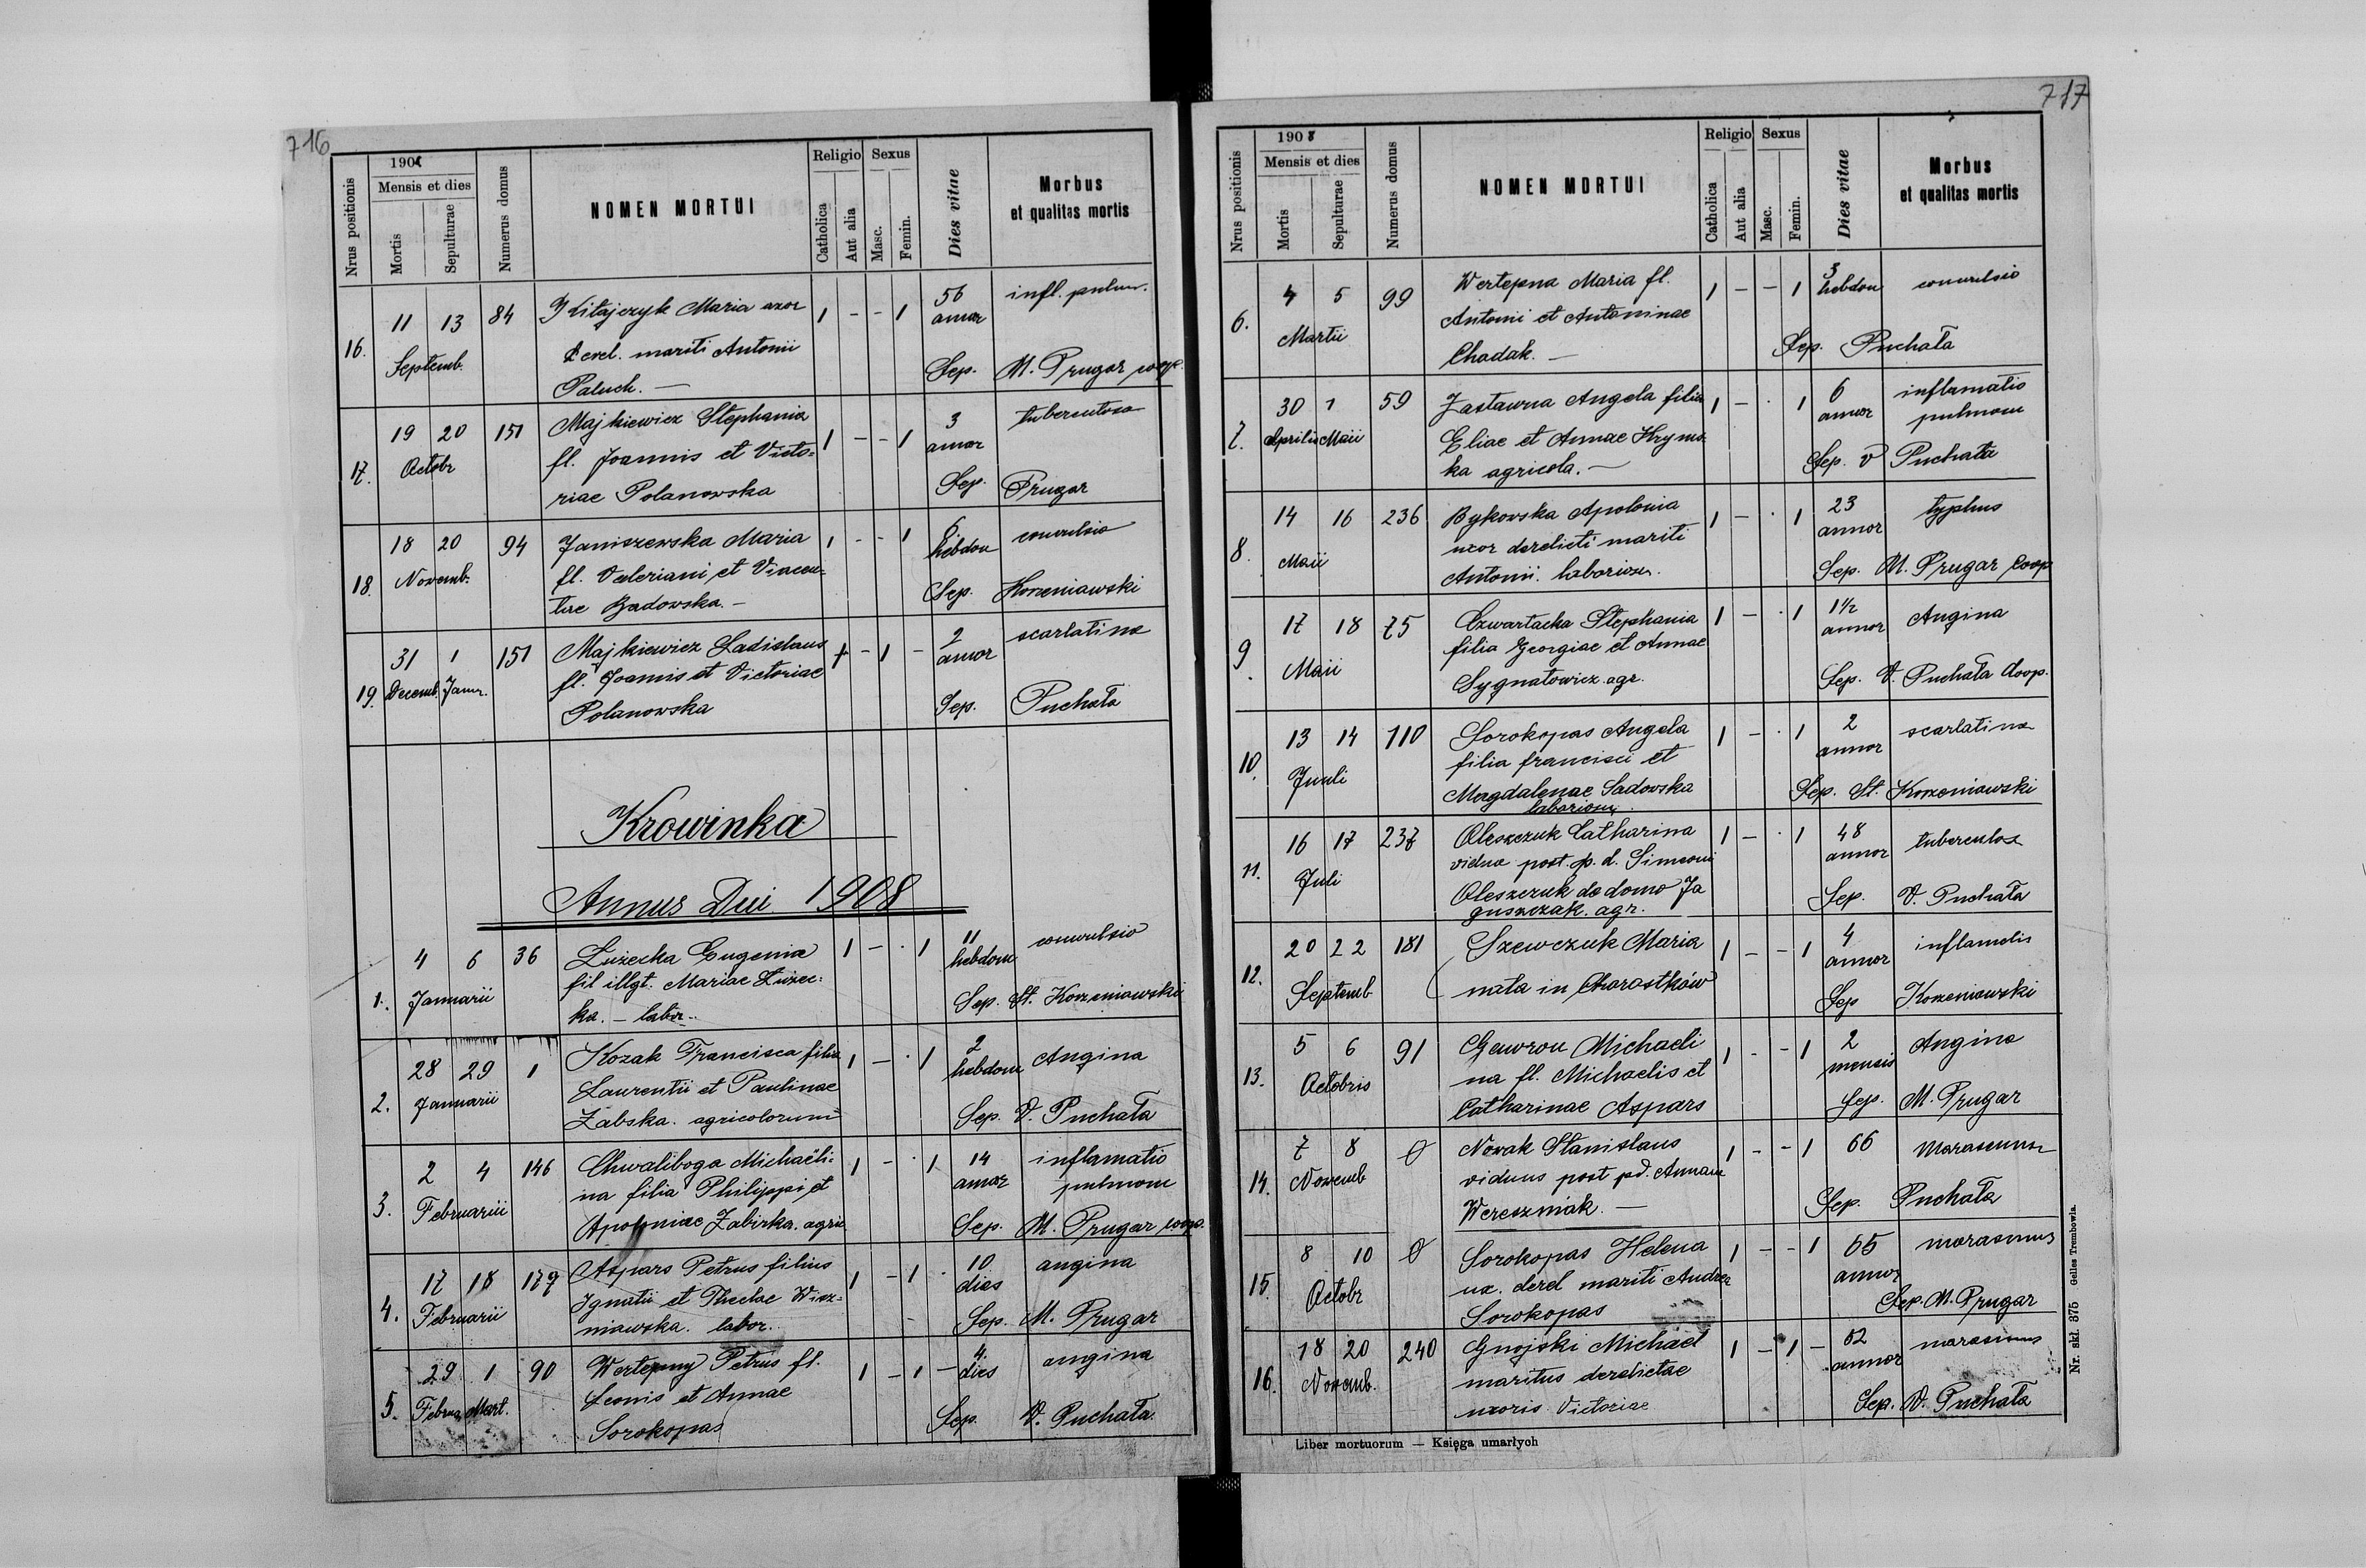 716
Nrus positionis
190
Mensis et dies
Mortis
Sepulturae
Numerus domus
NOMEN MORTUI
Religio
Catholica
Aut alia
Sexus
Masc.
Femin.
Dies vitae
Morbus
et qualitas mortis
16. 11 13 84 Maria uxor 1 - - 1 56 infl. pulm.
Septemb. derel. mariti Antonii annor
Paluch. — Sep. M. Prugar coop.
17. 19 20 151 Majkiewicz Stephania 1 - - 1 3 tuberculosa
Octobr fl. Joannis et Victo= annor
riae Polanowska Sep. Prugar
18. 18 20 94 Janiszewska Maria 1 - - 1 6 convulsio
Novemb. fl. Valeriani et Vincen= hebdom
tiae Badowska. — Sep. Korzeniawski
19. 31 1 151 Majkiewicz Ladislaus 1 - 1 - 2 scarlatina
Decemb. Janr. fl. Joannis et Victoriae annor
Polanowska Sep. Puchała
Krowinka
Annus Dni 1908
1. 4 6 36 Luzecka Eugenia 1 - . 1 11 convulsio
Januarii fil illgt. Mariae Luzec= hebdom
ka. — labor. Sep. St. Korzeniawski
2. 28 29 1 Kozak Francisca filia 1 - . 1 2 Angina
Januarii Laurentii et Paulinae hebdom
Zabska. agricolorum Sep. V. Puchała
3. 2 4 146 Chwaliboga Michaëli= 1 - . 1 14 inflamatio
Februarii na filia Philippi et annor pulmom
Apoloniae Zabirka. agric Sep. M. Prugar coop.
4. 17 18 179 Aspars Petrus filius 1 - 1 . 10 angina
Februarii Ignatii et Theclae Wisz= dies
niawska. labor. Sep. M. Prugar
5. 29 1 90 Wertepny Petrus fl. 1 - 1 - 4. angina
Februa Mart. Leonis et Annae dies
Sorokopas Sep. V. Puchała
717
Nrus positionis
1908
Mensis et dies
Mortis
Sepulturae
Numerus domus
NOMEN MORTUI
Religio
Catholica
Aut alia
Sexus
Masc.
Femin.
Dies vitae
Morbus
et qualitas mortis
6. 4 5 99 Wertepna Maria fl. 1 - - 1 3 convulsio
Martii Antoni et Antoninae hebdom
Chadak. — Sep. Puchała
7. 30 1 59 Zastawna Angela filia 1 - . 1 6 inflamatio
Aprilis Maii Eliae et Annae Hryno annor pulmom
ka agricola. — Sep. V Puchała
8. 14 16 236 Bykowska Apolonia 1 - . 1 23 typhus
Maii uxor derelicti mariti annor
Antonii. laborios. Sep. M. Prugar Coop
9. 17 18 75 Czwartacka Stephania 1 - . 1 1½ Angina
Maii filia Georgiae et Annae annor
Sygnatowicz. agr. Sep. V. Puchała Coop.
10. 13 14 110 Sorokopas Angela 1 - . 1 2 scarlatina
Junli filia francisci et annor
Magdalenae Sadowska Sep. St. Korzeniawski
laboriosu
11. 16 17 237 Oleszczuk Catharina 1 - . 1 48 tuberculos
Juli vidua post. p. d. Simeoni annor
Oleszczuk de domo Ja Sep. V. Puchała
guszczak. agr.
12. 20 22 181 Szewczuk Maria 1 - - 1 4 inflamatis
Septemb nata in Chorostków annor
Sep Korzeniawski
13. 5 6 91 Gawron Michaeli 1 - - 1 2 Angina
Octobris na fl. Michaelis et mensis
Catharinae Aspars Sep. M. Prugar
14. 7 8 0 Nowak Stanislaus 1 - - 1 66 marasmus
Novemb viduus post pd. Annam
Wereszniak. — Sep. Puchała
15. 8 10 0 Sorokopas Helena 1 - - 1 65 marasmus
Octobr ux. derel mariti Andrea annor
Sorokopas Sep. M. Prugar
16. 18 20 240 Gnojski Michael 1 - 1 - 62 marasmus
Novemb. maritus derelictae annor
uxoris Victoriae Sep. V. Puchała
Liber mortuorum — Księga umarłych
Nr. skł. 375 Gelles Trembowla.